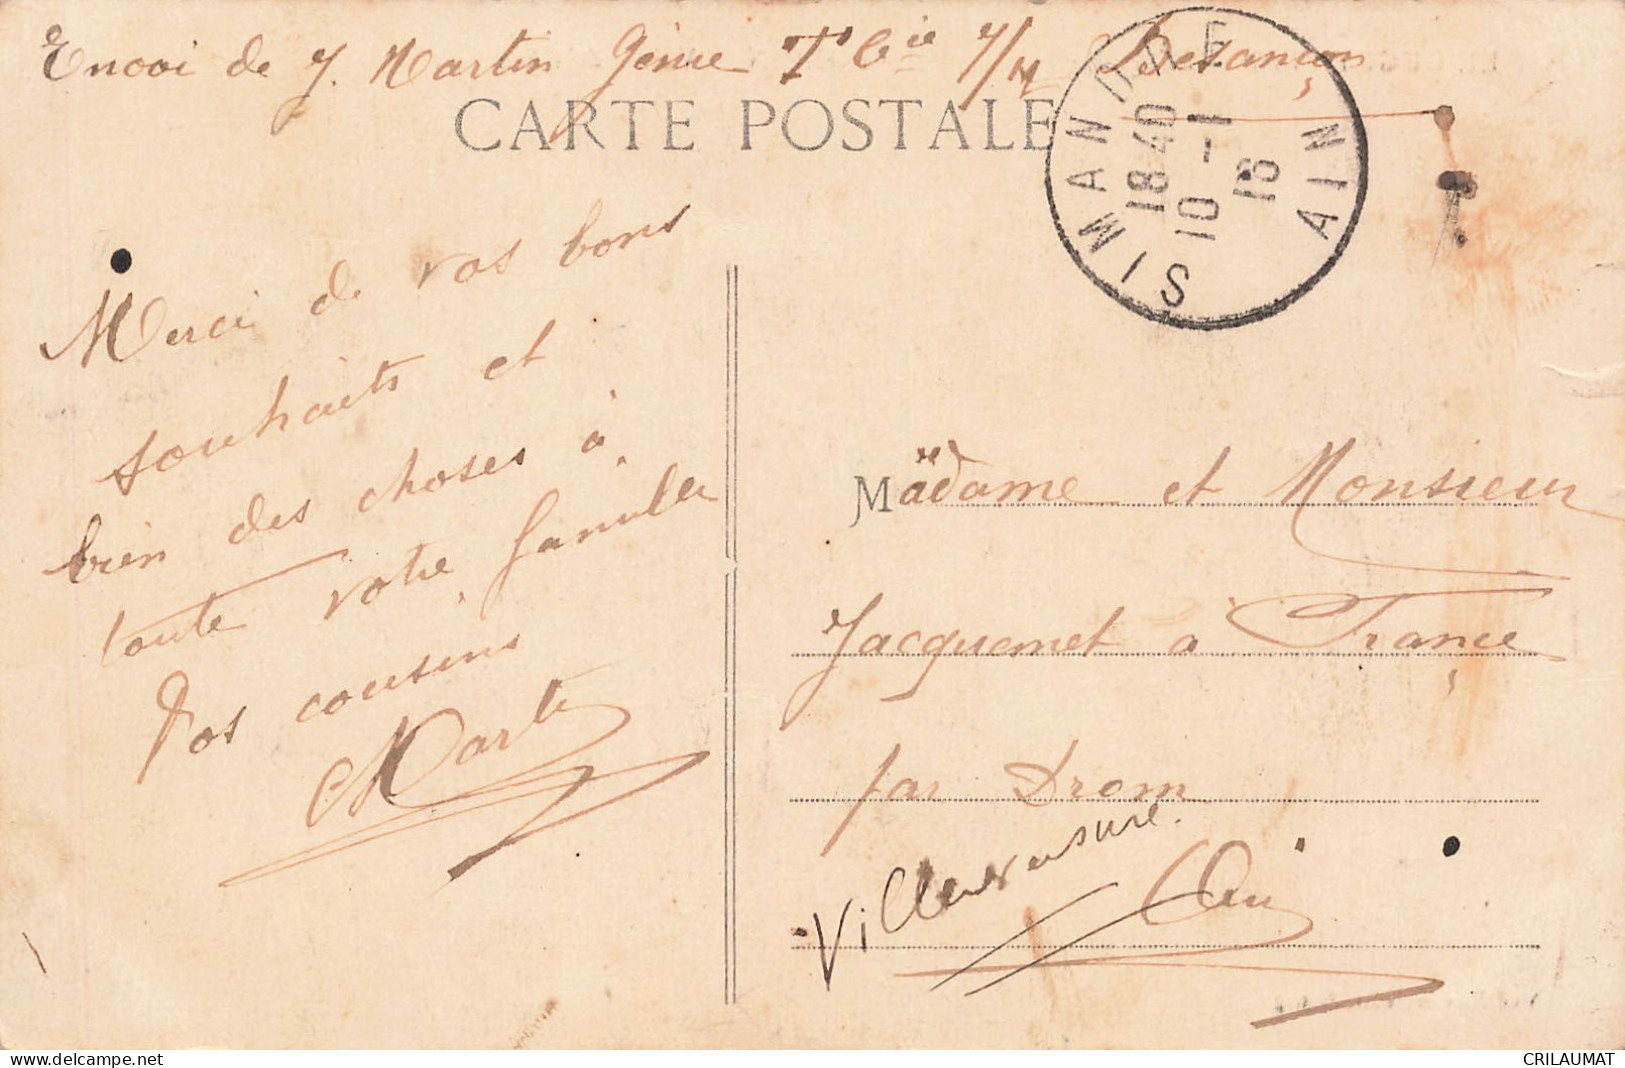 Envoi de J. Martin Génie 7e Cie 7/M Besançon
CARTE POSTALE
SIMANDRE AIN
18 40
10 - 1
13
Merci de vos bons
souhaits et
bien des choses à
toute votre famille
Vos cousins
Martin
Mädame et Monsieur
Jacquemet a France
par Drom
Villereversure.
Ain
CRILAUMAT